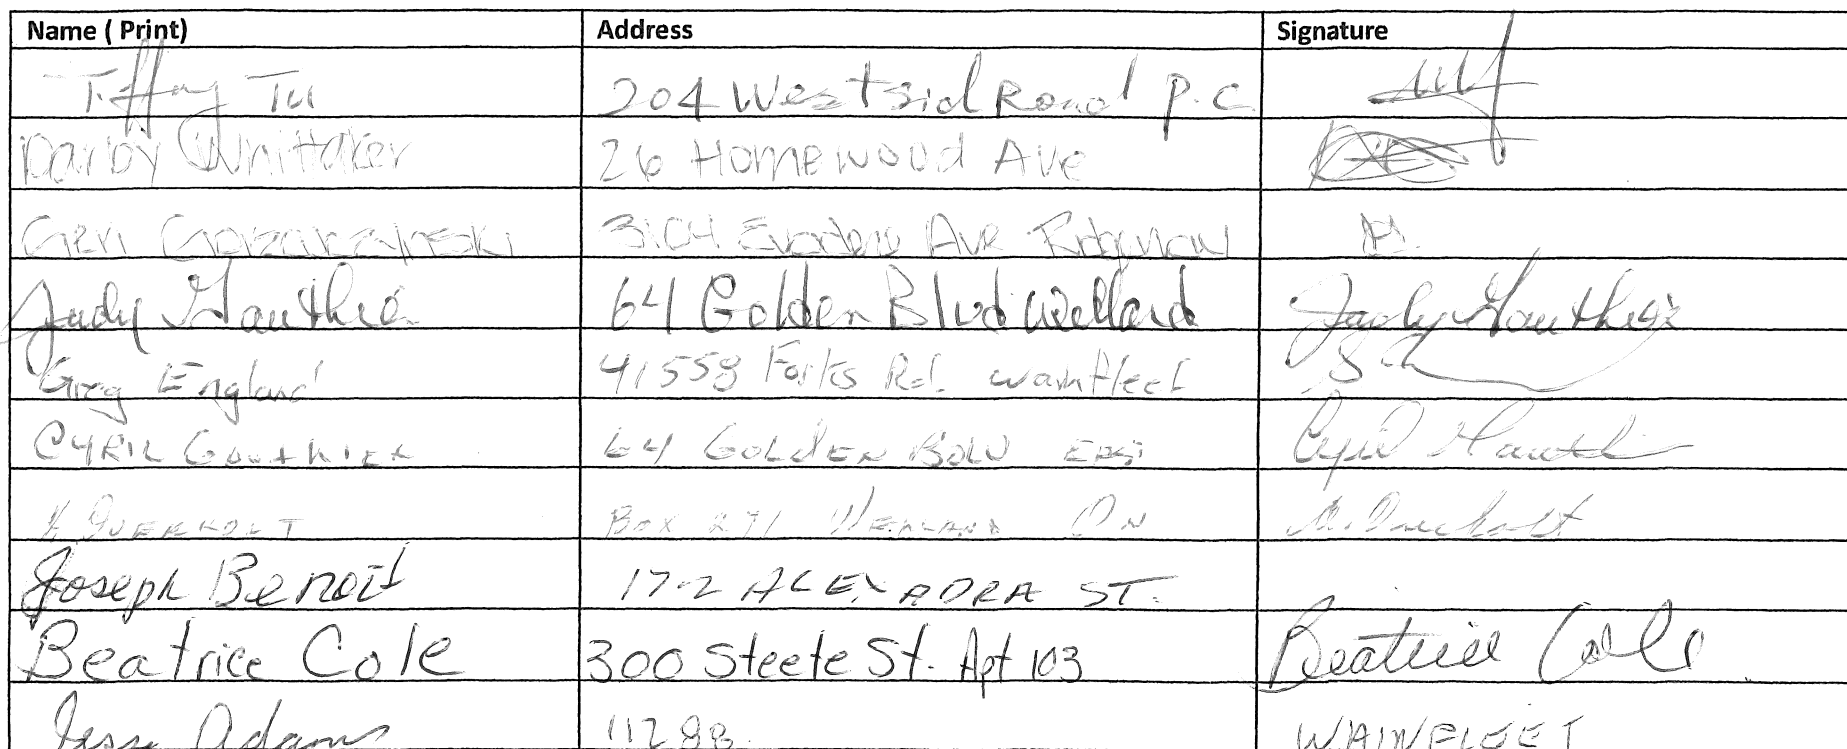 Name ( Print) Address Signature
Tiffany Tu 204 Westsid Road P.C
Darby Whittaker 26 Homewood Ave
Geri Gorzarzynski 3104 Ave Ridgeway
Judy Gauthier 64 Golden Blvd Welland Judy Gauthier
Greg England 41558 Forks Rd. Wainfleet
CYRIL GAUTHIER 64 GOLDEN Cyril
OVERHOLT BOX 271 WELLAND ON Overholt
Joseph Benoit 172 ALEXADRA ST.
Beatrice Cole 300 Steele St. Apt 103 Beatrice Cole
Adams 11288 WAINFLEET